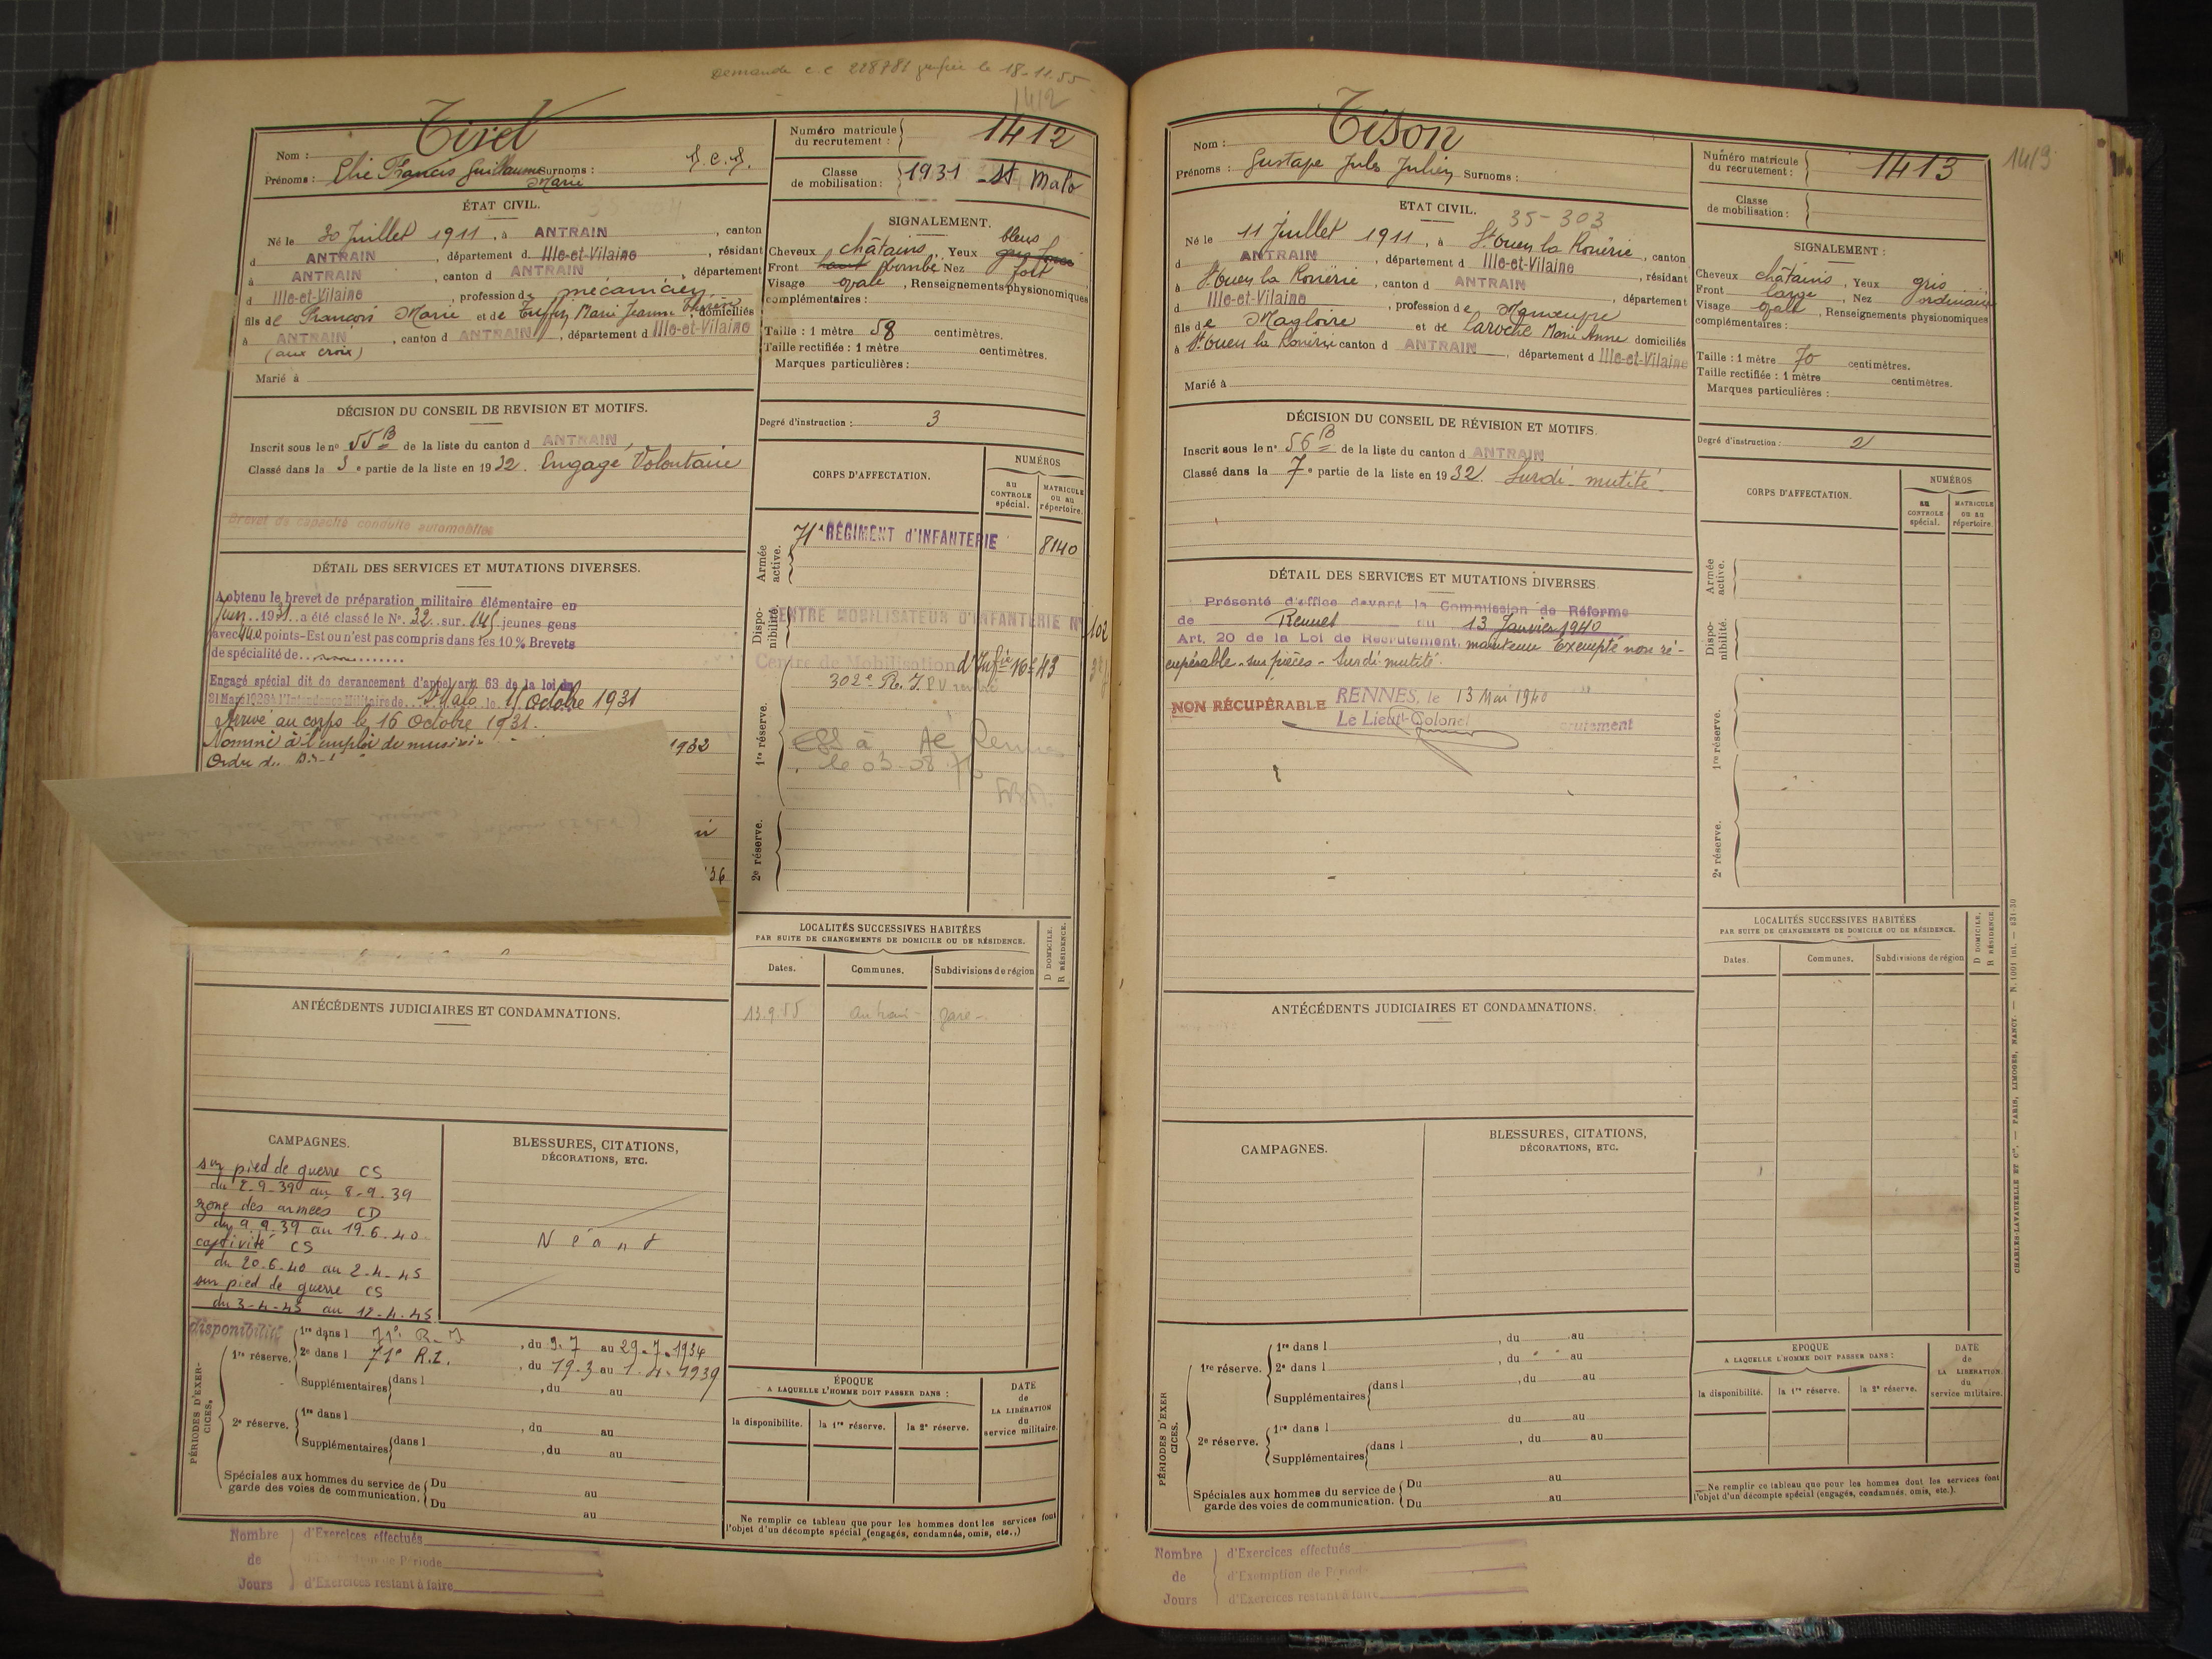 Demande c.c 228781 le 18-11.55
1412
Tirel
Nom :
Prénoms : Elie Francis Guillaume Surnoms :
Marie
Numéro matricule du recrutement : 1412
Classe de mobilisation : 1931 St Malo
ÉTAT CIVIL.
Né le 30 Juillet 1911, à ANTRAIN, canton
d ANTRAIN, département d Ille-et-Vilaine, résidant
à ANTRAIN, canton d ANTRAIN, département
d Ille-et-Vilaine, profession de mécanicien
fils de François Marie et de Tuffin Marie Jeanne domiciliés
à ANTRAIN, canton d ANTRAIN, département d Ille-et-Vilaine
(aux croix)
Marié à
SIGNALEMENT.
bleus
Cheveux châtains, Yeux
Front haut bombé Nez fort
Visage ovale, Renseignements physionomiques
complémentaires :
Taille : 1 mètre 58 centimètres.
Taille rectifiée : 1 mètre centimètres.
Marques particulières :
Degré d'instruction : 3
DÉCISION DU CONSEIL DE REVISION ET MOTIFS.
Inscrit sous le n° 55 B de la liste du canton d ANTRAIN
Classé dans la 3e partie de la liste en 1932. Engagé Volontaire
Brevet de capacité conduite automobiles
DÉTAIL DES SERVICES ET MUTATIONS DIVERSES.
A obtenu le brevet de préparation militaire élémentaire en
Juin 1931 a été classé le N°. 32 sur 145 jeunes gens
avec 440 points-Est ou n'est pas compris dans les 10% Brevets
de spécialité de
Engagé spécial dit de devancement d'appel art 63 de la loi du
31 Mars 1928 à l'Intendance Militaire de St Malo le 15 Octobre 1931
Arrivé au corps le 16 Octobre 1931.
Nommé à l'emploi de 1932
Ordre du
36
CORPS D'AFFECTATION.
NUMÉROS
au CONTROLE spécial.
MATRICULE ou au répertoire.
Armée active.
71e RÉGIMENT d'INFANTERIE 8140
Disponibilité.
CENTRE MOBILISATEUR D'INFANTERIE N° 102
Centre de Mobilisation d'Infie No 43
302e R. I.
1re réserve.
Rennes
2e réserve.
LOCALITÉS SUCCESSIVES HABITÉES
PAR SUITE DE CHANGEMENTS DE DOMICILE OU DE RÉSIDENCE.
D DOMICILE.
R RÉSIDENCE.
Dates. Communes. Subdivisions de région
13.9.55 Antrain gare
ANTÉCÉDENTS JUDICIAIRES ET CONDAMNATIONS.
CAMPAGNES.
sur pied de guerre CS
du 2-9-39 au 8-9-39
zone des armées CD
du 9.9.39 au 19.6.40
captivité CS
du 20-6-40 au 2-4-45
sur pied de guerre CS
du 3-4-45 au 12-4-45
BLESSURES, CITATIONS,
DÉCORATIONS, ETC.
Néant
PÉRIODES D'EXERCICES.
disponibilité
1re réserve.
1re dans l 71e R.I, du 9.7 au 29.7.1934
2e dans l 71e R.I., du 19.3 au 1.4.1939
Supplémentaires dans l , du au
2e réserve.
1re dans l , du au
Supplémentaires dans l , du au
Spéciales aux hommes du service de
garde des voies de communication.
Du au
Du au
ÉPOQUE
A LAQUELLE L'HOMME DOIT PASSER DANS :
la disponibilité. la 1re réserve. la 2e réserve.
DATE de LA LIBÉRATION du service militaire.
Ne remplir ce tableau que pour les hommes dont les services font
l'objet d'un décompte spécial (engagés, condamnés, omis, etc.,)
Nombre de Jours
d'Exercices effectués
d'Exemption de Période
d'Exercices restant à faire
1413
Tison
Nom :
Prénoms : Gustave Jules Julien Surnoms :
Numéro matricule du recrutement : 1413
Classe de mobilisation :
ETAT CIVIL. 35-303
Né le 11 Juillet 1911, à St Ouen la Rouërie, canton
d ANTRAIN, département d Ille-et-Vilaine, résidant
à St Ouen la Rouërie, canton d ANTRAIN, département
d Ille-et-Vilaine, profession de Manœuvre
fils de Magloire et de Laroche Marie Anne domiciliés
à St Ouen la Rouërie canton d ANTRAIN, département d Ille-et-Vilaine
Marié à
SIGNALEMENT :
Cheveux châtains, Yeux gris
Front large, Nez ordinaire
Visage ovale, Renseignements physionomiques
complémentaires :
Taille : 1 mètre 70 centimètres.
Taille rectifiée : 1 mètre centimètres.
Marques particulières :
Degré d'instruction : 2
DÉCISION DU CONSEIL DE RÉVISION ET MOTIFS.
Inscrit sous le n° 56 B de la liste du canton d ANTRAIN
Classé dans la 7e partie de la liste en 1932. Surdi-mutité.
DÉTAIL DES SERVICES ET MUTATIONS DIVERSES
Présenté d'office devant la Commission de Réforme
de Rennes du 13 Janvier 1940
Art. 20 de la Loi de Recrutement, maintenu Exempté non ré-
cupérable - sur pièces - Surdi-mutité.
NON RÉCUPÉRABLE RENNES, le 13 Mai 1940
Le Lieut-Colonel
CORPS D'AFFECTATION.
NUMÉROS
au CONTROLE spécial.
MATRICULE ou au répertoire.
Armée active.
Disponibilité.
1re réserve.
2e réserve.
LOCALITÉS SUCCESSIVES HABITÉES
PAR SUITE DE CHANGEMENTS DE DOMICILE OU DE RÉSIDENCE.
D DOMICILE.
R RÉSIDENCE.
Dates. Communes. Subdivisions de région
ANTÉCÉDENTS JUDICIAIRES ET CONDAMNATIONS.
CAMPAGNES.
BLESSURES, CITATIONS,
DÉCORATIONS, ETC.
PÉRIODES D'EXERCICES.
1re réserve.
1re dans l , du au
2e dans l , du au
Supplémentaires dans l , du au
2e réserve.
1re dans l du au
Supplémentaires dans l , du au
Spéciales aux hommes du service de
garde des voies de communication.
Du au
Du au
EPOQUE
A LAQUELLE L'HOMME DOIT PASSER DANS :
la disponibilité. la 1re réserve. la 2e réserve.
DATE de LA LIBÉRATION du service militaire.
Ne remplir ce tableau que pour les hommes dont les services font
l'objet d'un décompte spécial (engagés, condamnés, omis, etc.).
CHARLES-LAVAUZELLE ET Cie. — PARIS, LIMOGES, NANCY.
Nombre de Jours
d'Exercices effectués
d'Exemption de Période
d'Exercices restant à faire